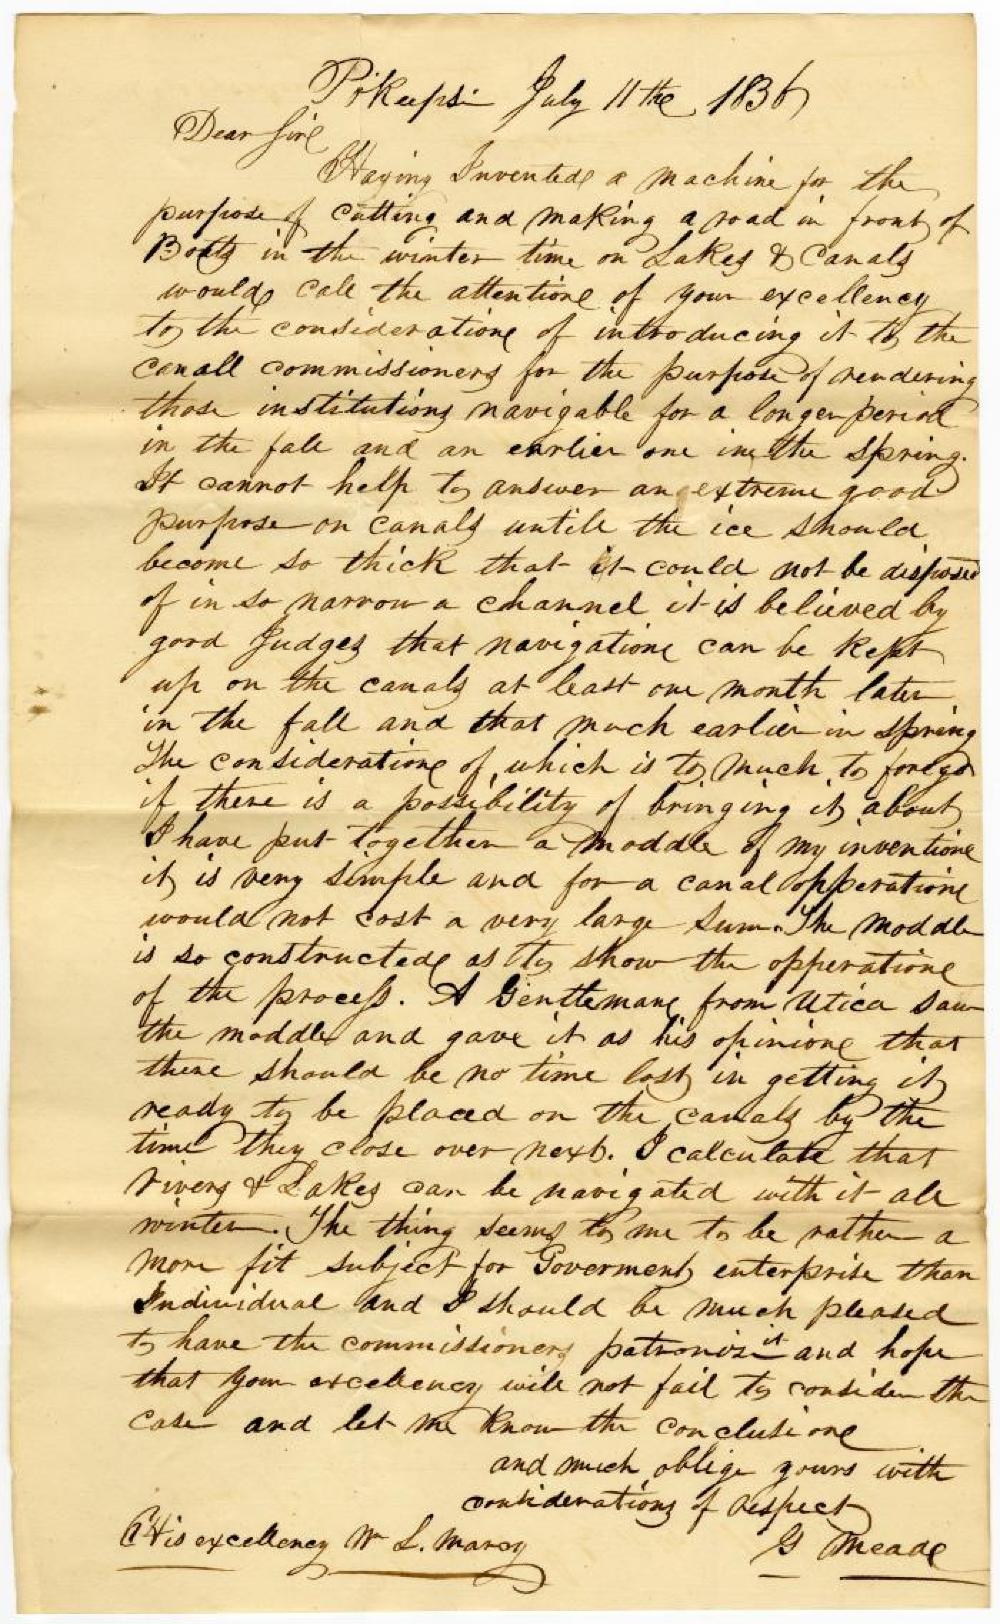 Pokeepsi July 11the 1836
Dear Sire
Having Invented a machine for the
purpose of cutting and making a road in front of
Boats in the winter time on Lakes & Canals
would call the attentione of your excellency
to the consideratione of introducing it to the
canall commissioners for the purpose of rendering
those institutions navigable for a longer period
in the fall and an earlier one in the Spring.
It cannot help to answer an extreme good
purpose on canals untill the ice should
become so thick that it could not be disposed
of in so narrow a channel it is believed by
good Judges that navigatione can be kept
up on the canals at least one month later
in the fall and that much earlier in spring
The consideratione of which is to much to forego
if there is a possibility of bringing it about
I have put together a moddle of my inventione
it is very simple and for a canal opperatione
would not cost a very large Sum. The moddle
is so constructede as to show the opperatione
of the process. A Gentlemane from Utica saw
the moddle and gave it as his opinione that
there should be no time lost in getting it
ready to be placed on the canals by the
time they close over next. I calculate that
rivers & Lakes can be navigated with it all
winter. The thing seems to me to be rather a
more fit subject for Goverment enterprise than
Individual and I should be much pleased
to have the commissioners patronise it and hope
that your excellency will not fail to consider the
case and let me know the conclusione
and much oblige yours with
considerations of respect
His excellency W L. Marcy G Meade